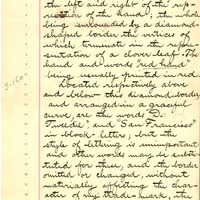 the left and right of the rep-
resentation of the hand, the whole
being inclosed by a diamond-
shaped border the vertices of
which terminate in the repre-
sentation of a clover-leaf. The
hand and word "red hand"
being usually printed in red.
Located respectively above
and below this diamond border
and arranged in a graceful
curve, are the words "D.
Tweedie", and "San Francisco"
in block-letters; but the
style of lettering is unimportant
and other words may be substi-
tuted for these, and the border
omitted or changed, without
materially affecting the char-
acter of my trade-mark, the